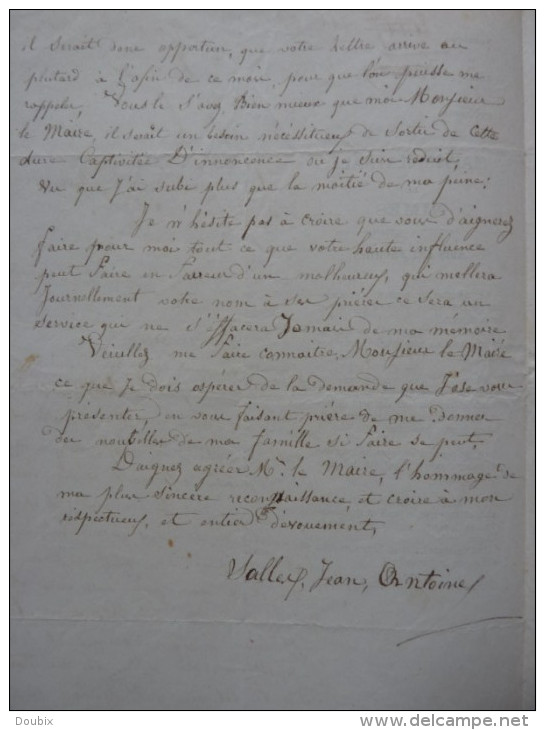 il serait donc opportun, que votre lettre arrive au
plutard à l'afin de ce mois, pour que l'on puisse me
rappeler. Vous le s'avez Bien mieux que moi Monsieur
le Maire, il serait un besoin nécéssiteux de Sortir de Cette
dure Captivitée D'innoncence ou je suis reduit,
Vu que J'ai subi plus que la moitié de ma peine.
Je n'hésite pas à croire que vous d'aignerez
faire pour moi tout ce que votre haute influence
peut faire en faveur d'un malheureux, qui mellera
Journellement votre nom à ses prières ce sera un
service qui ne s'éffacera Jamais de ma mémoire
Véuillez me faire connaitre, Monsieur le Maire
ce que Je dois éspérer de la demande que J'ose vous
présenter, en vous faisant prière de me Donner
des nouvelles de ma famille si faire se peut.
Daignez agréer Mr. le Maire, l'hommage de
ma plus sincère reconnaissance et croire à mon
réspectueux, et entier dévouement,
Salles, Jean, Antoine
Doubix
www.delcampe.net